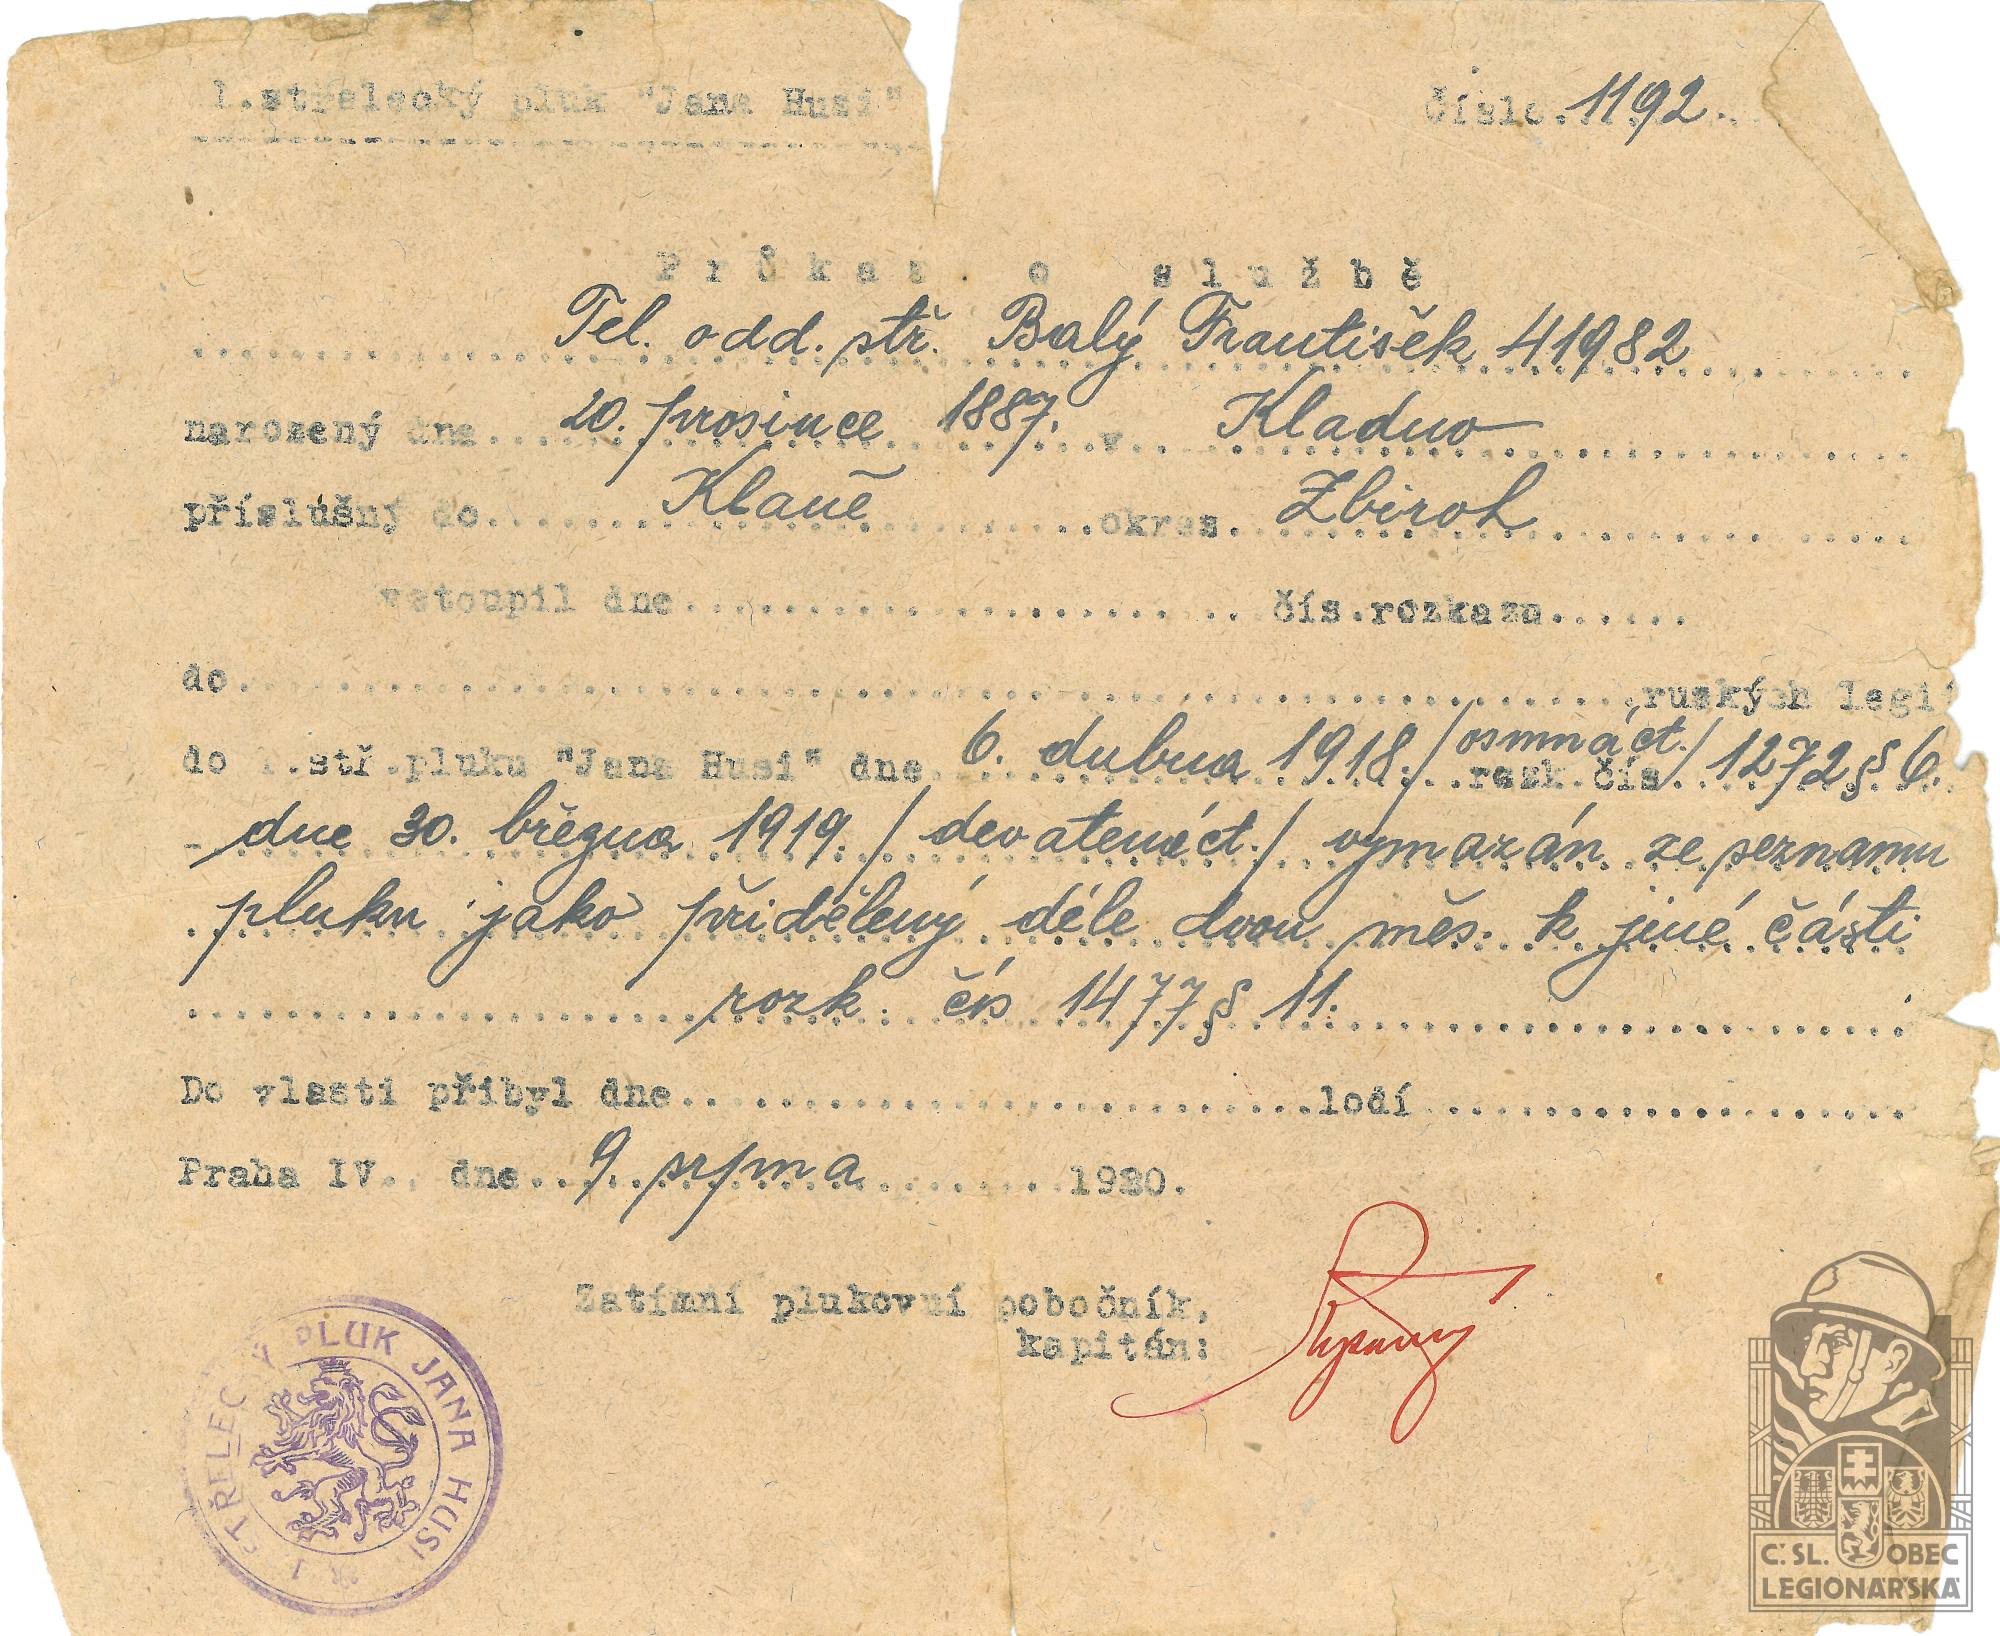 1.střelecký pluk "Jana Husi"
číslo. 1192.
Průkaz o službě
Tel. odd. stř. Balý František 41982
narozený dne 20. prosince 1887. v Kladno
příslušný do Klaně okres Zbiroh
vstoupil dne čís.rozkazu
do ruských legií
do 1.stř.pluku "Jana Husi" dne 6. dubna 1918. /osmnáct./ rozk.čís. 1272 § 6.
dne 30. března 1919. /devatenáct./ vymazán ze seznamu
pluku jako přidělený déle dvou měs. k jiné části
rozk. čís 1477 § 11.
Do vlasti přibyl dne lodí
Praha IV., dne 9. srpna 1920.
Zatímní plukovní pobočník,
kapitán:
1. STŘELECKÝ PLUK JANA HUSI
Č. SL. OBEC
LEGIONÁŘSKÁ